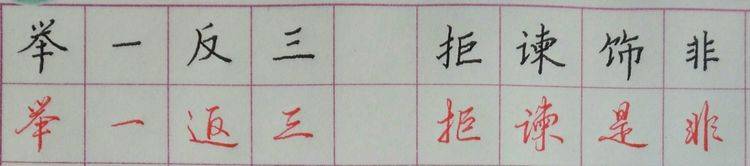 举一反三 拒谏饰非
举一返三 拒谏是非